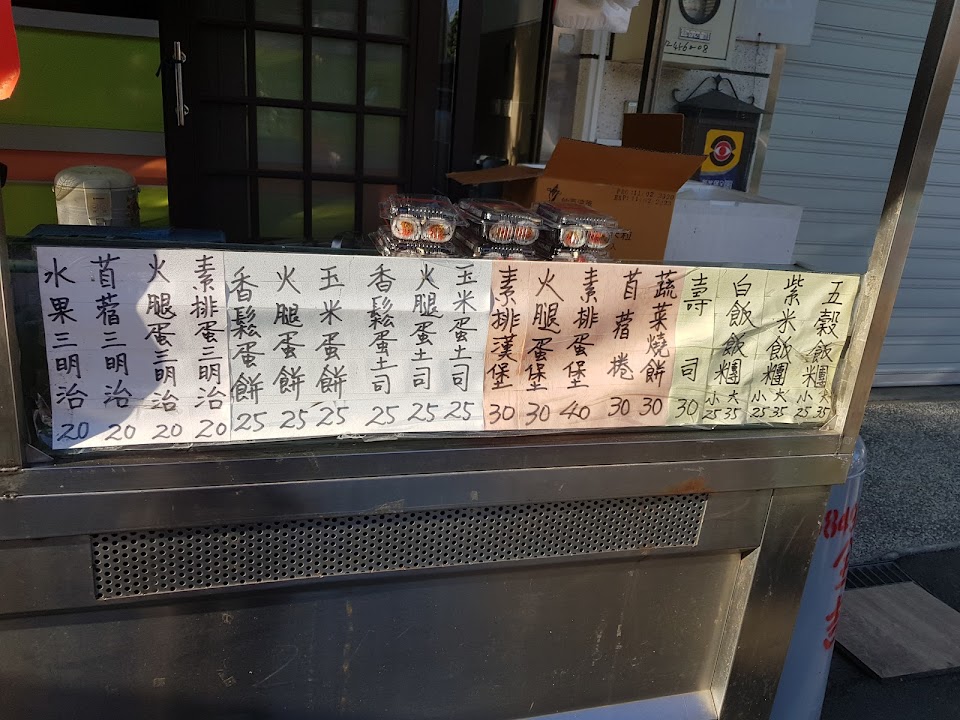 水果三明治 20
苜蓿三明治 20
火腿蛋三明治 20
素排蛋三明治 20
香鬆蛋餅 25
火腿蛋餅 25
玉米蛋餅 25
香鬆蛋土司 25
火腿蛋土司 25
玉米蛋土司 25
素排漢堡 30
火腿蛋堡 30
素排蛋堡 40
苜蓿捲 30
蔬菜燒餅 30
壽司 30
白飯飯糰 小25 大35
紫米飯糰 小25 大35
五穀飯糰 小25 大35